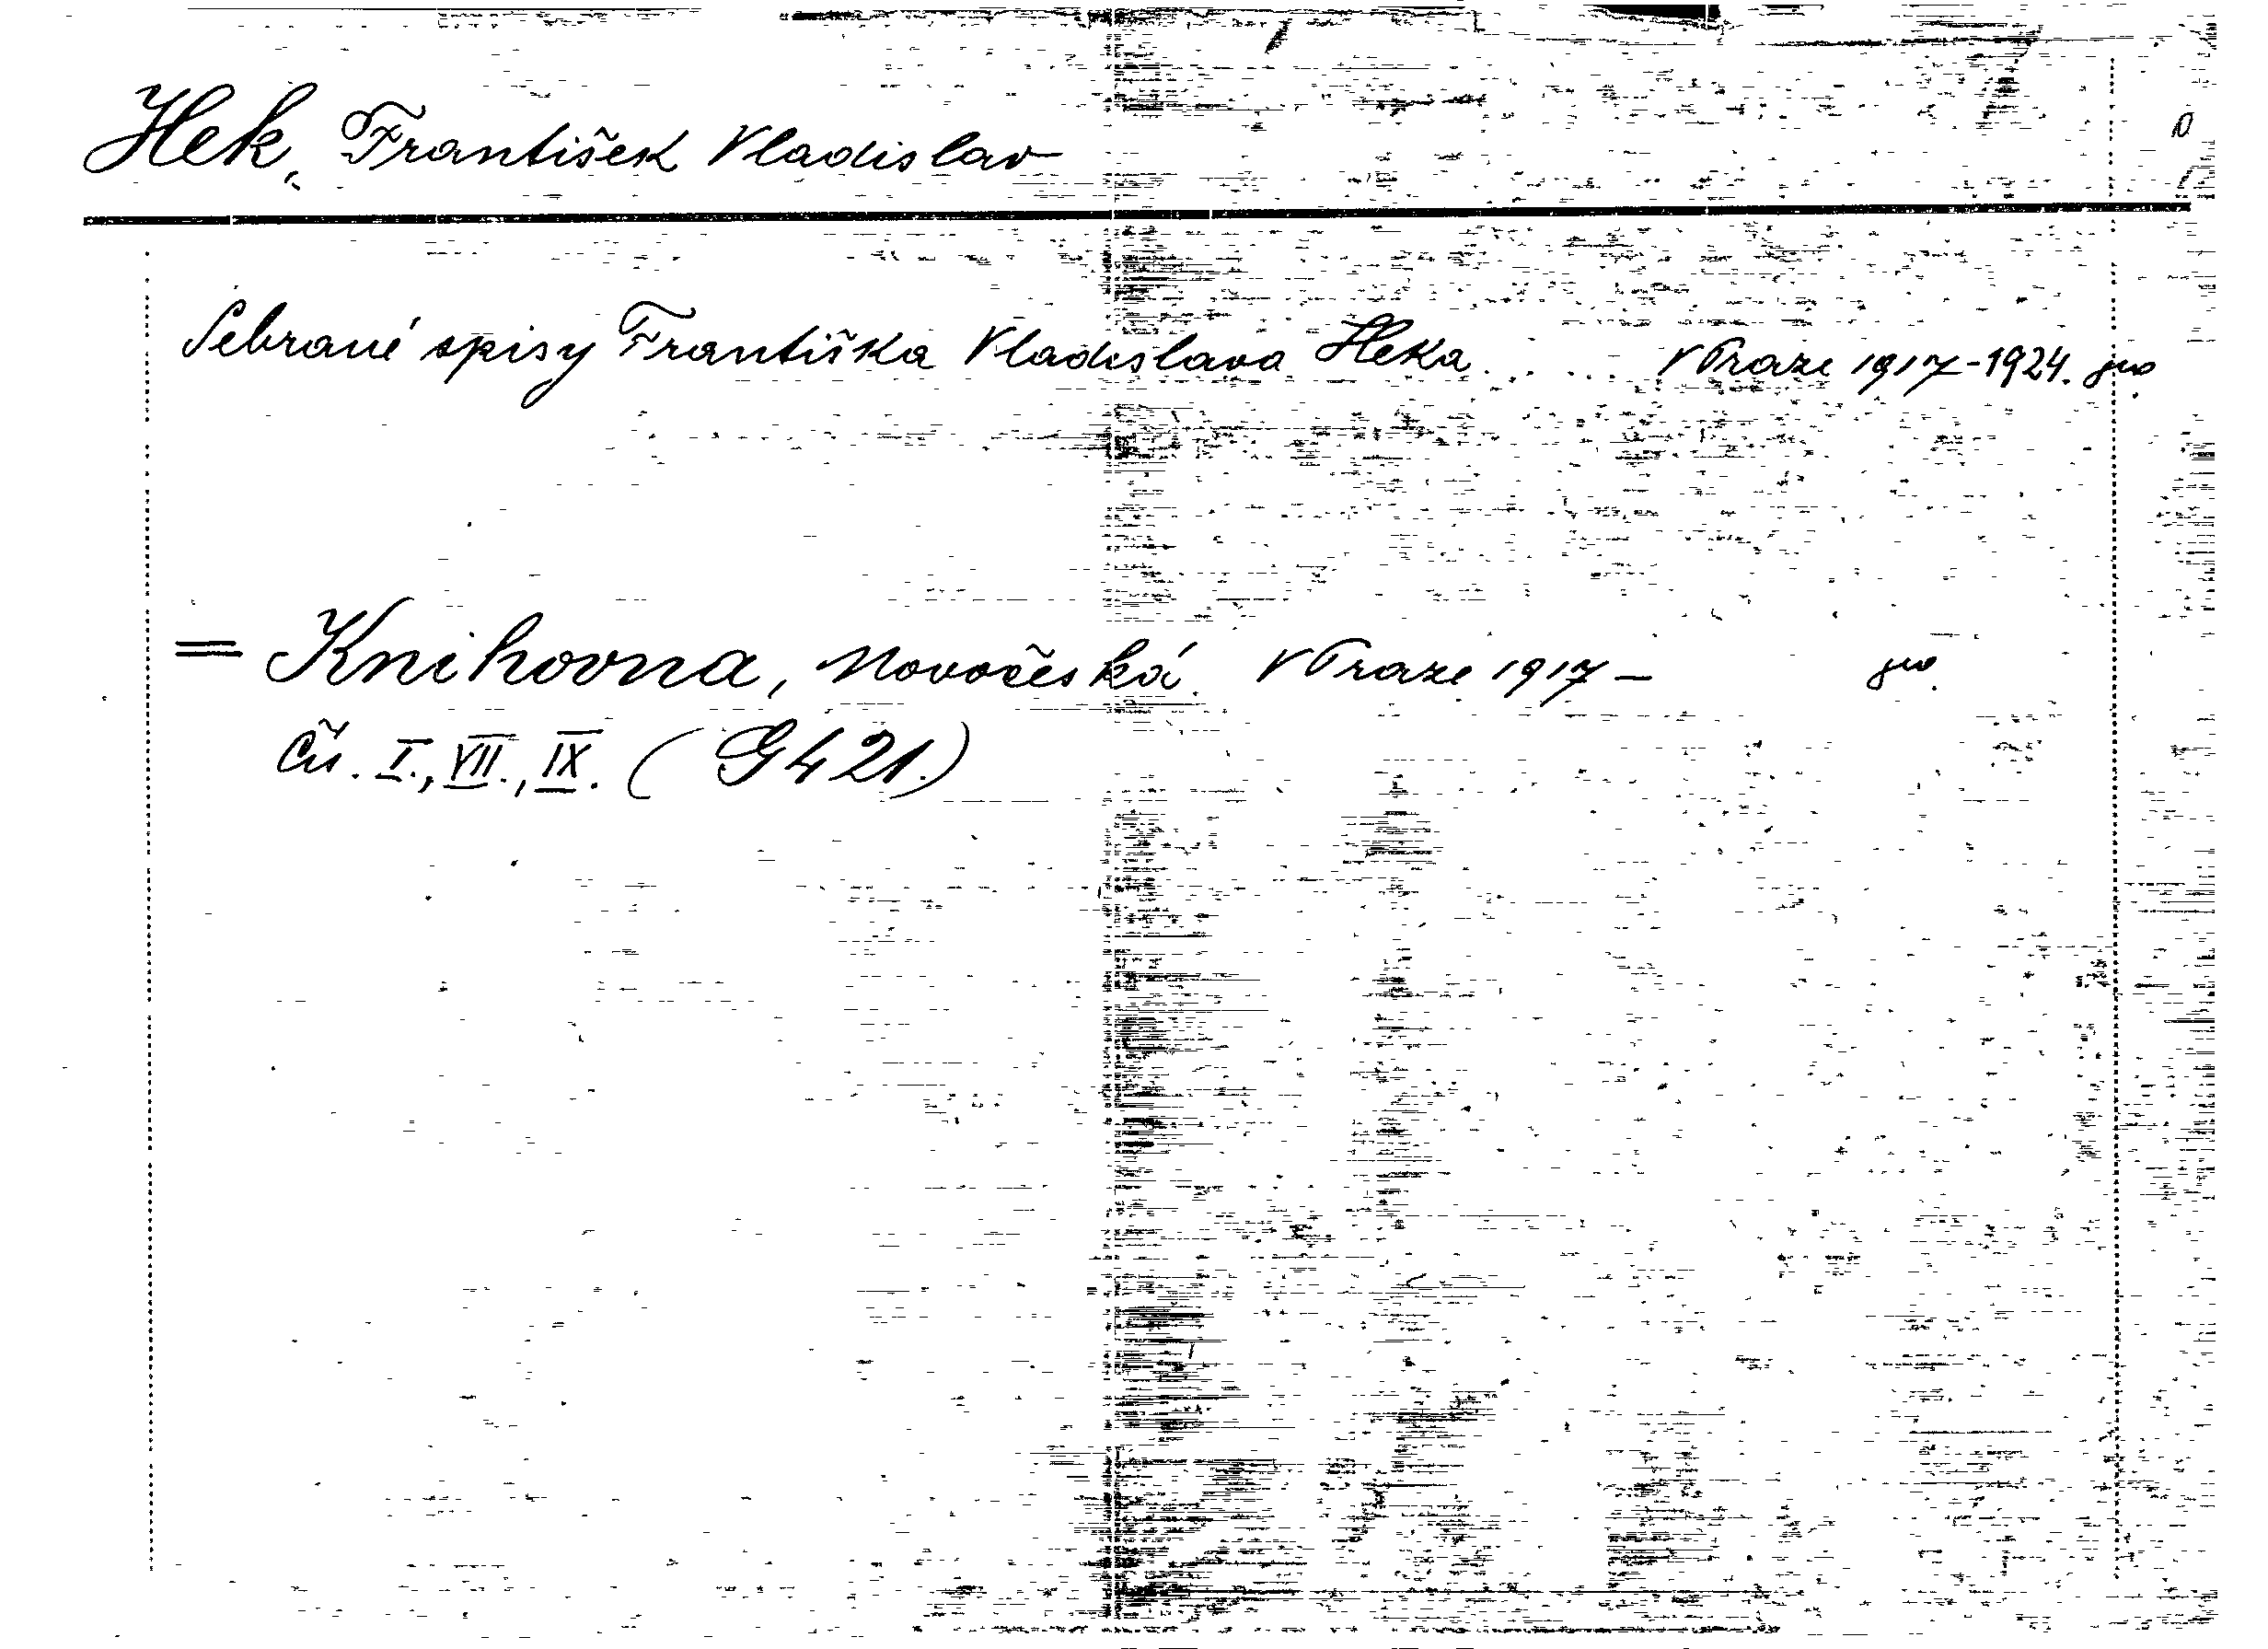 Hek, František Vladislav
Sebrané spisy Františka Vladislava Heka..... V Praze 1917-1924.
= Knihovna, Novočeská. V Praze 1917 -
Čís. I., VII., IX. (G 421.)